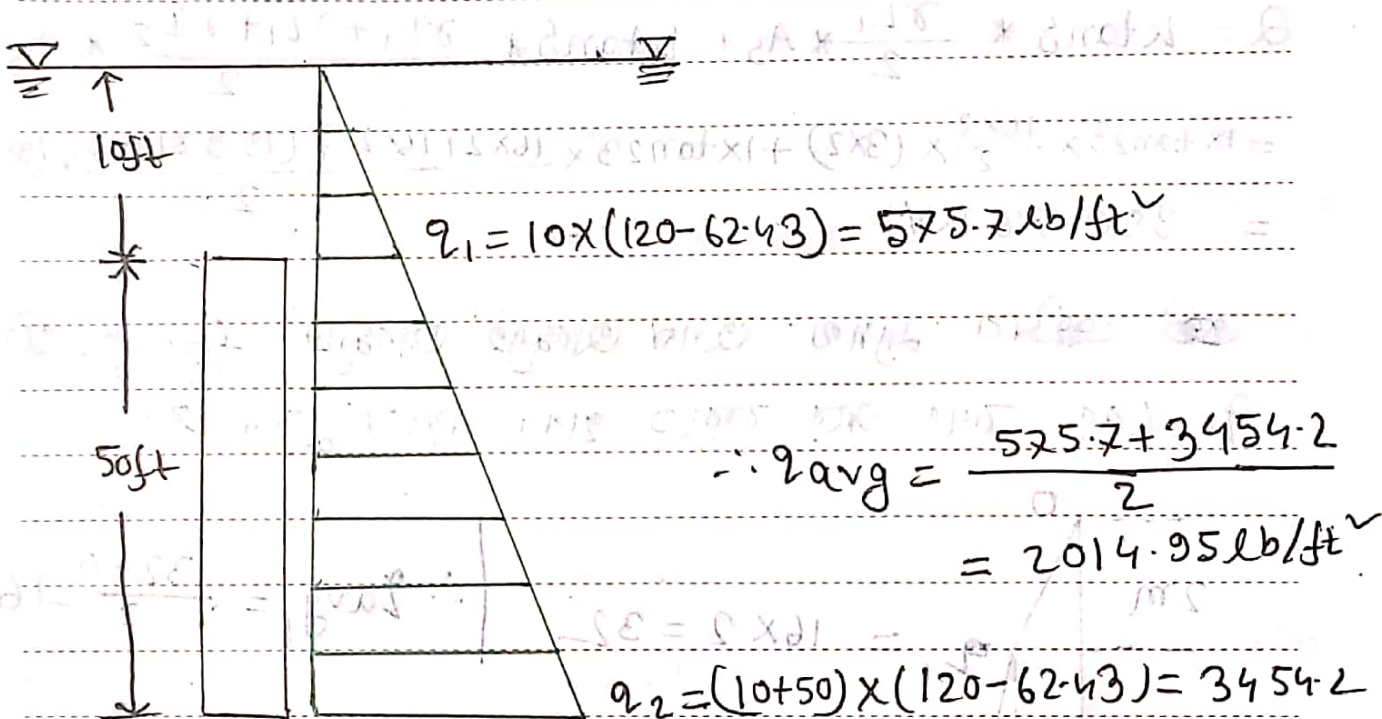 10ft
q₁ = 10×(120-62.43) = 575.7 lb/ft²
50ft
∴ qavg = (575.7+3454.2)/2
= 2014.95 lb/ft²
q₂ = (10+50)×(120-62.43) = 3454.2